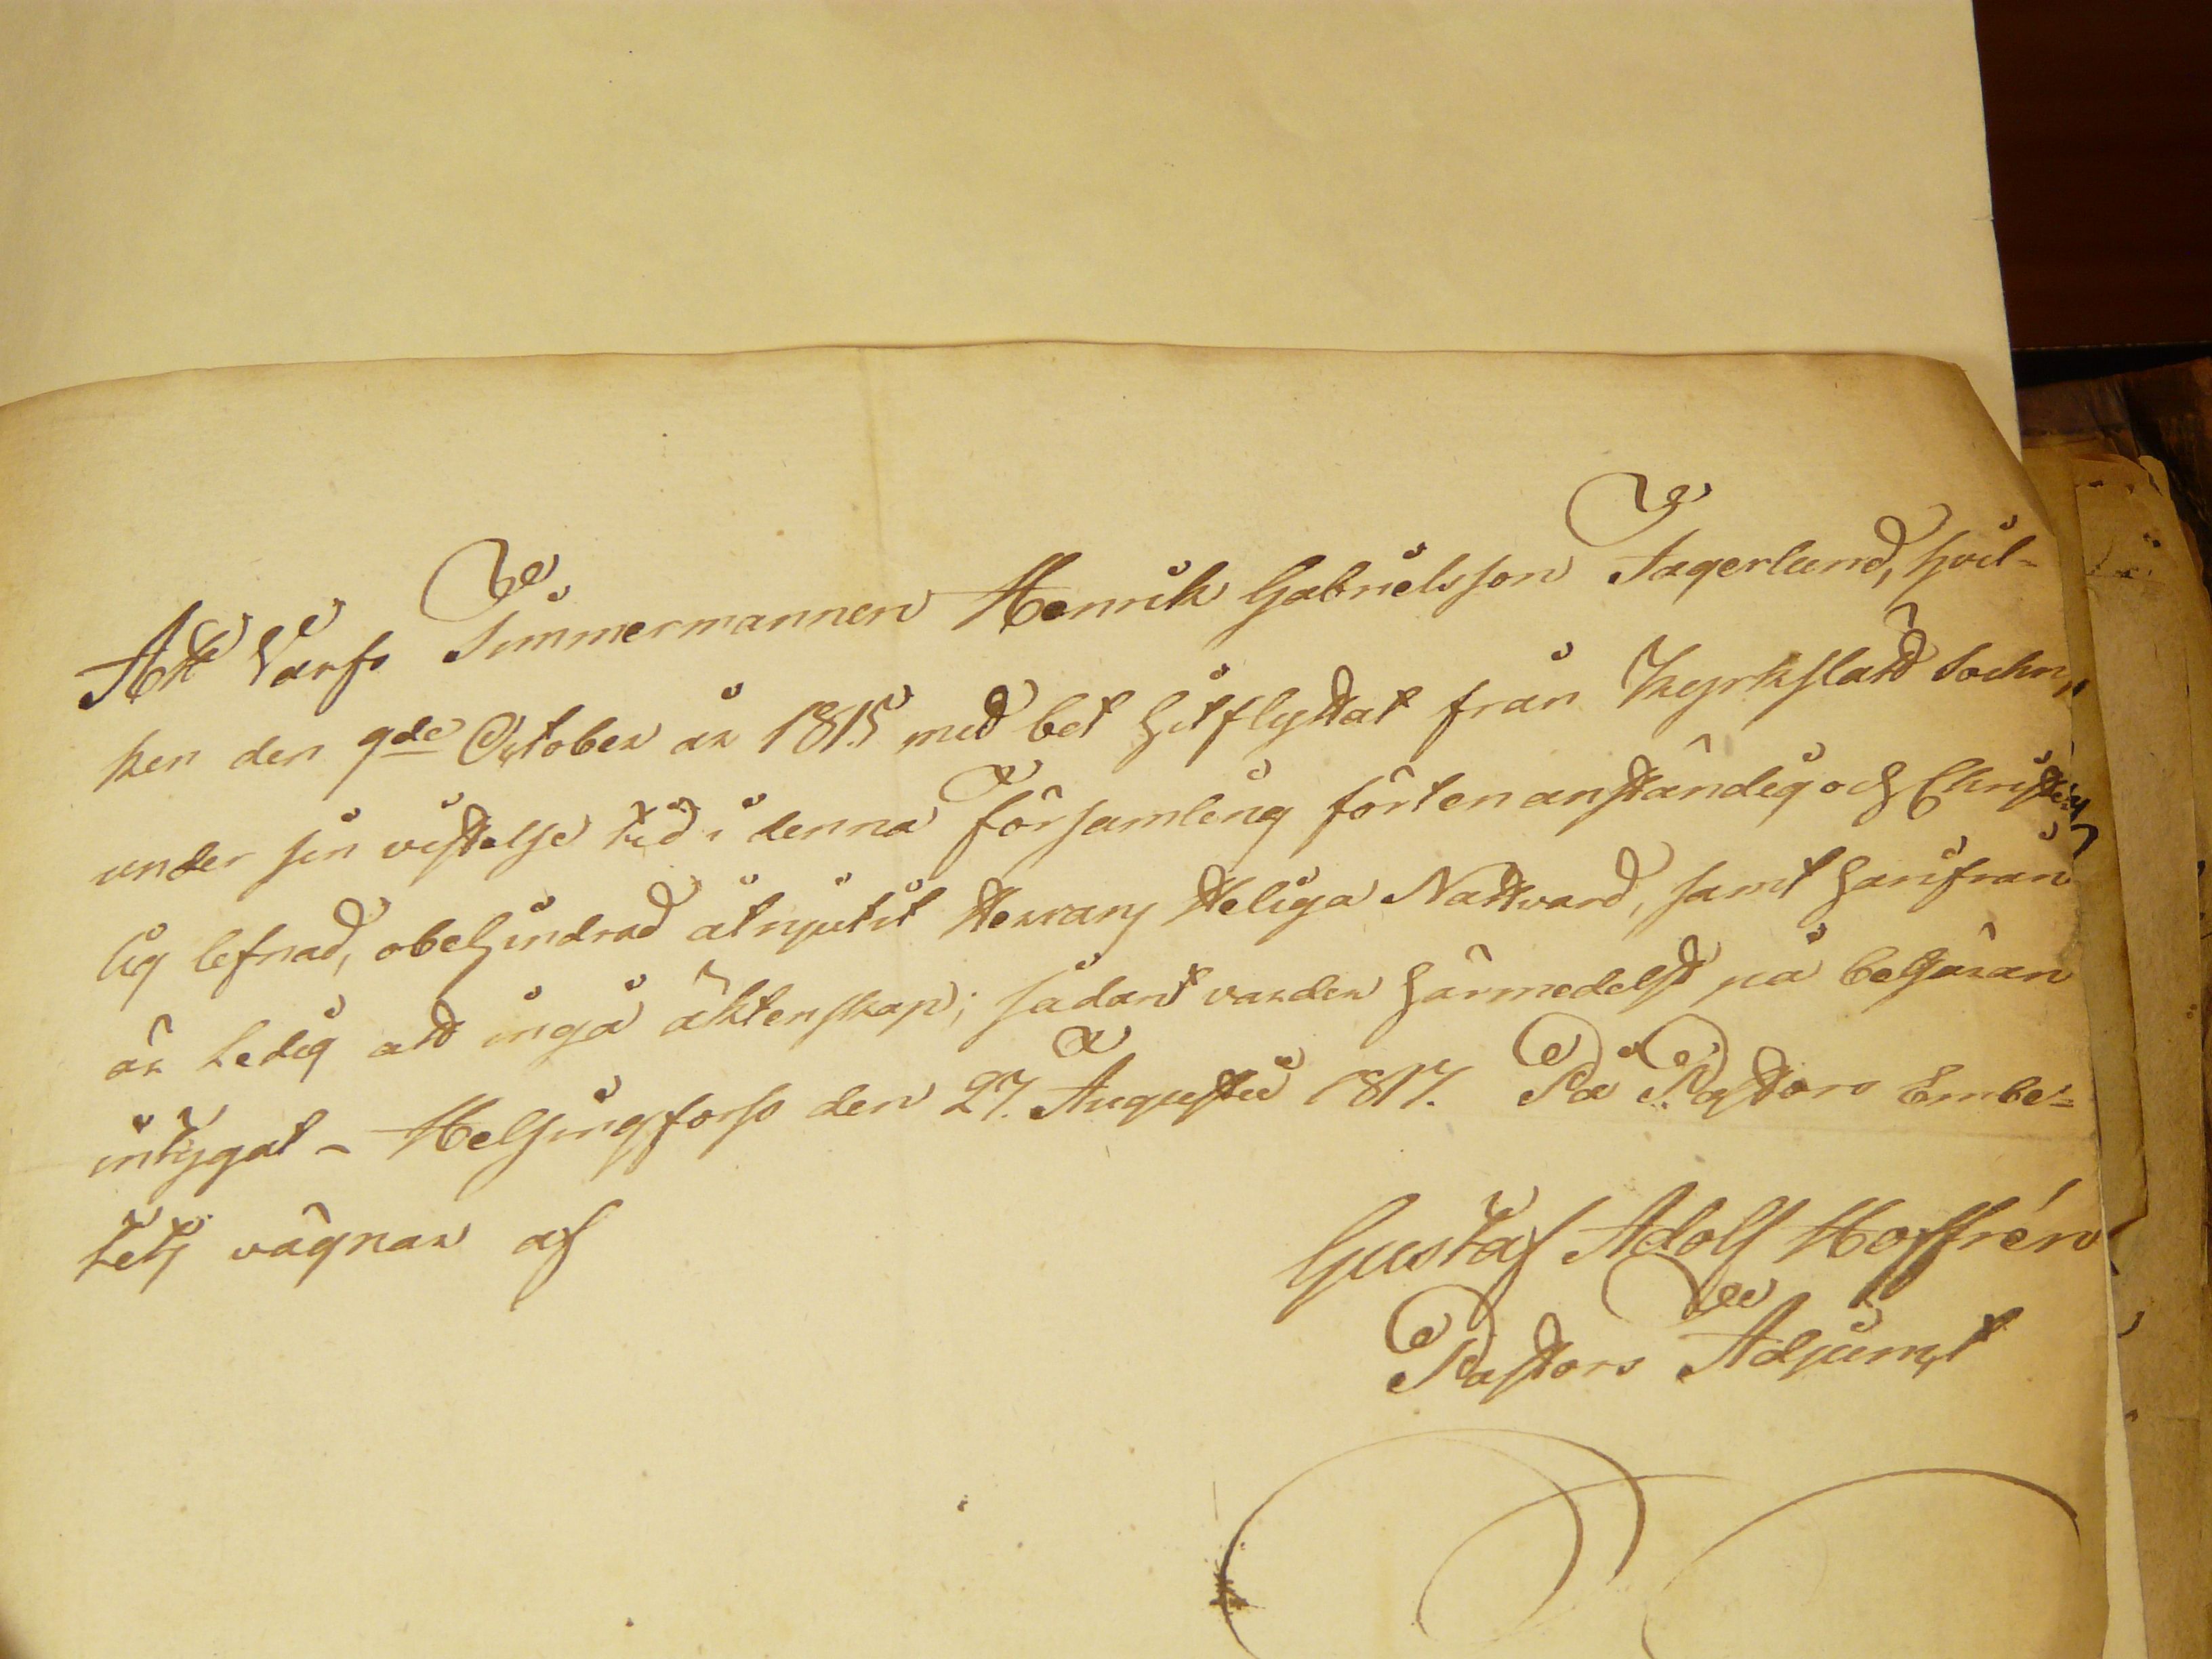 Att Varfs Timmermannen Henrik Gabrielsson Fagerlund, hvil-
ken den 9de October år 1815 med bet hitflyttat från Kyrkslätt Sochn,
under sin vistelse tid i denna Församling fört en anständig och Christe-
lig lefnad, obehindrad åtnjutit Herrans Heliga Nattvard, samt härifrån
är ledig att ingå äktenskap; sådant varder härmedelst på begäran
intygat – Helsingfors den 27. Augustii 1817. På Pastors Embe-
tets vägnar af
Gustaf Adolf Hoffrén
Pastors Adjunct